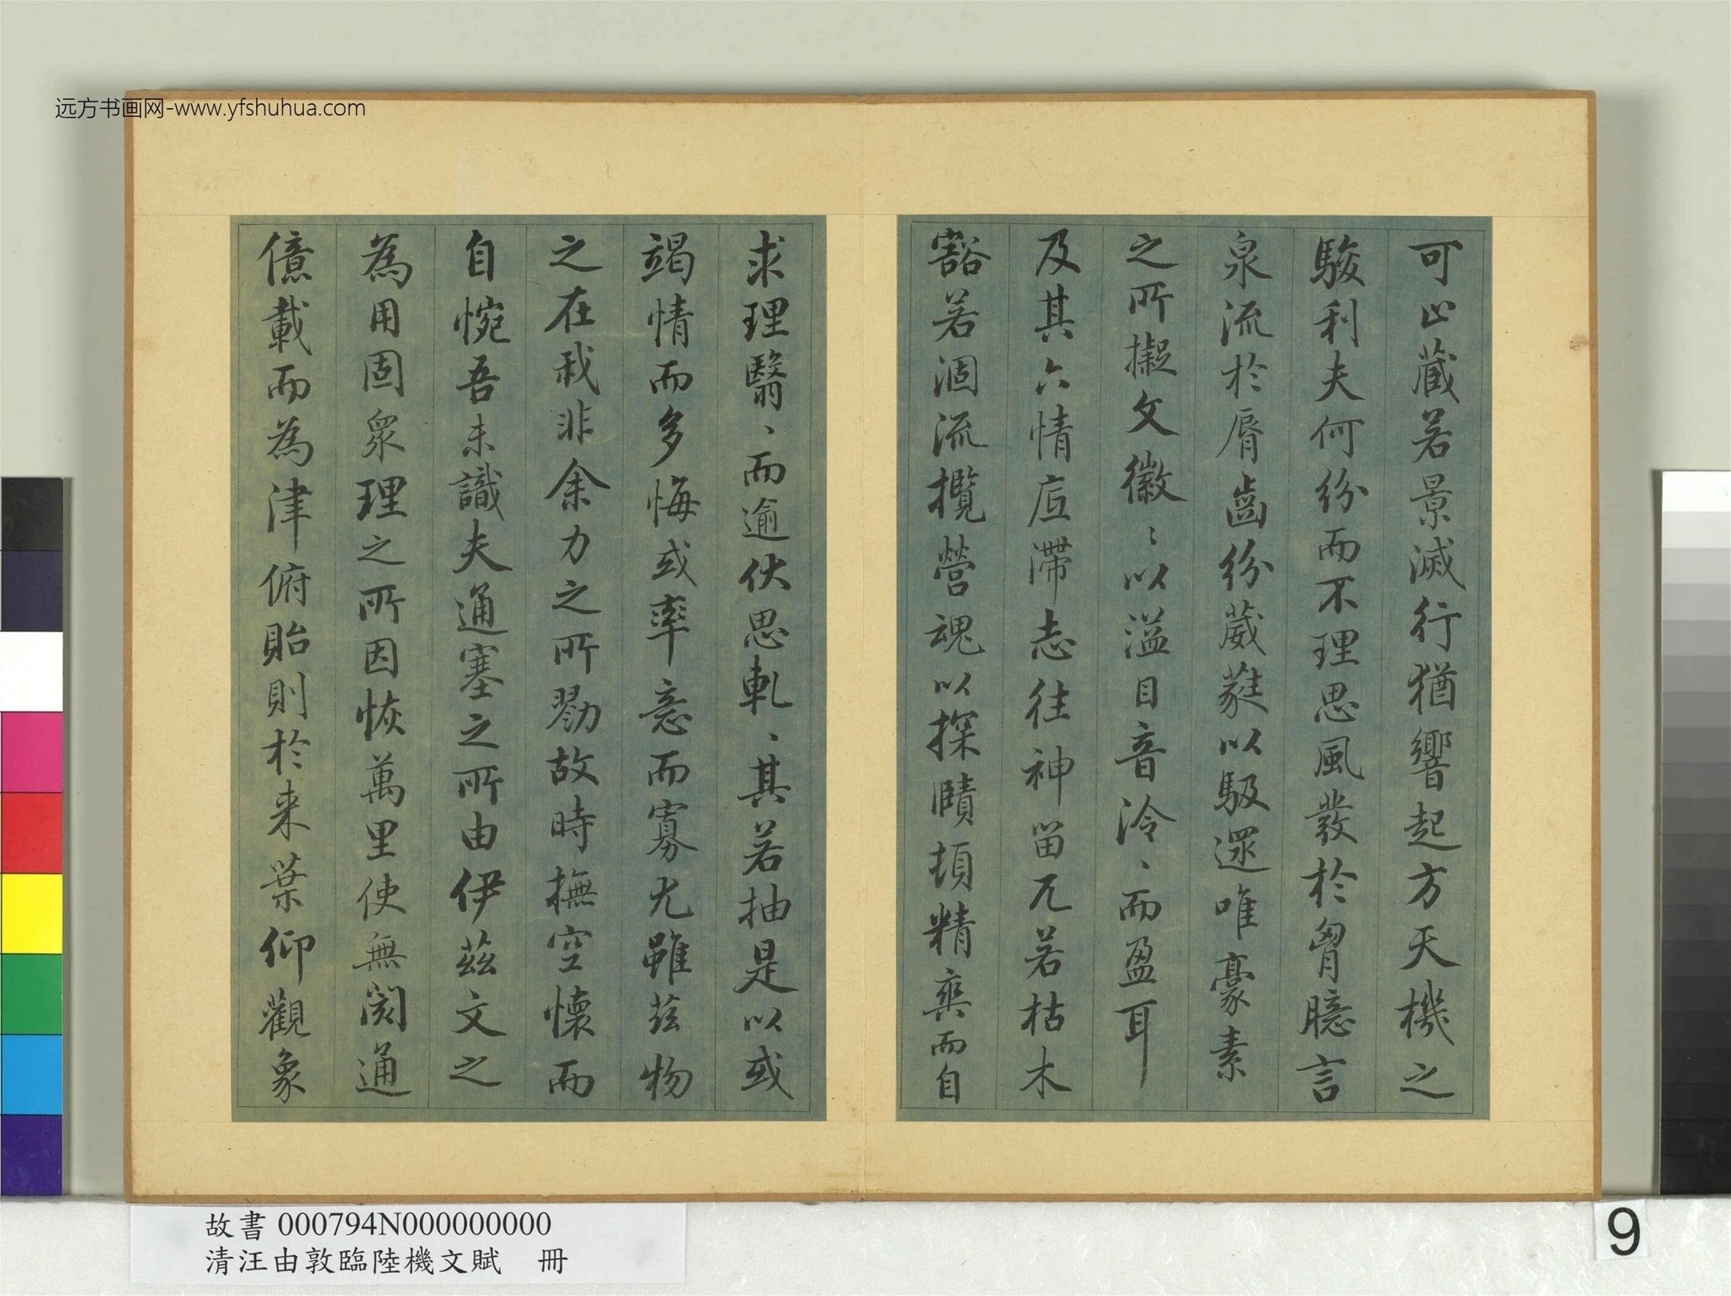 远方书画网-www.yfshuhua.com
可止藏若景滅行猶響起方天機之
駿利夫何紛而不理思風發於胷臆言
泉流於脣齒紛葳蕤以馺遝唯豪素
之所擬文徽〻以溢目音泠、而盈耳
及其六情底滯志往神留兀若枯木
豁若涸流攬營魂以探賾頓精爽而自
求理翳、而逾伏思軋、其若抽是以或
竭情而多悔或率意而寡尤雖茲物
之在我非余力之所勠故時撫空懷而
自惋吾未識夫通塞之所由伊茲文之
為用固衆理之所因恢萬里使無閡通
億載而為津俯貽則於来葉仰觀象
故書 000794N000000000
清汪由敦臨陸機文賦 冊
9